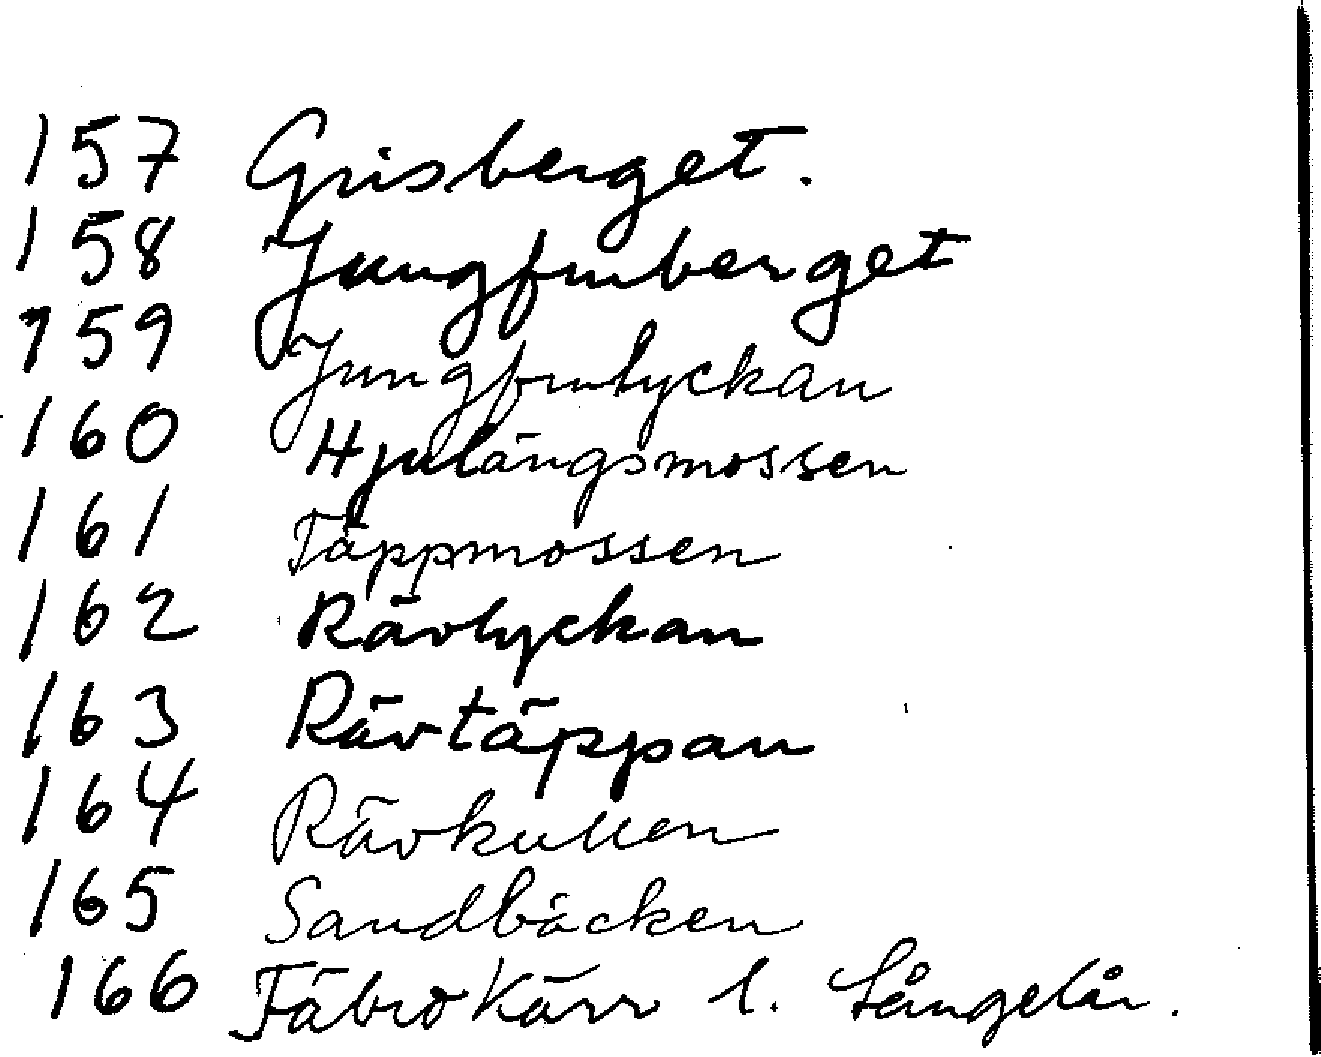 157 Grisberget.
158 Jungfruberget
159 Jungfrulyckan
160 Hjulängsmossen
161 Täppmossen
162 Rävlyckan
163 Rävtäppan
164 Rävkullen
165 Sandbäcken
166 Fäbrokärr l. Långelår.